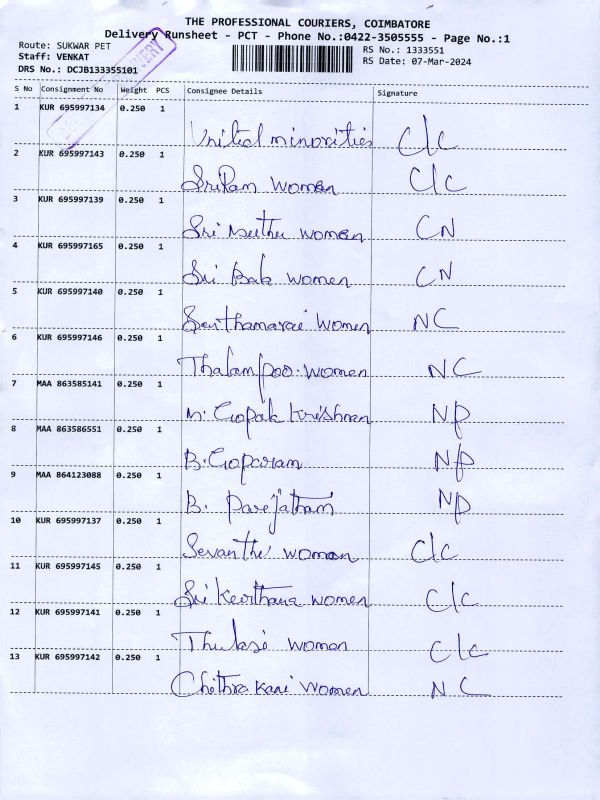 THE PROFESSIONAL COURIERS, COIMBATORE
Delivery Runsheet - PCT - Phone No.:0422-3505555 - Page No.:1
Route: SUKWAR PET
Staff: VENKAT
DRS No.: DCJB133355101
RS No.: 1333551
RS Date: 07-Mar-2024
S No Consignment No Weight PCS Consignee Details Signature
1 KUR 695997134 0.250 1
United minorities C/C
2 KUR 695997143 0.250 1
SriRam Women C/C
3 KUR 695997139 0.250 1
Sri women CN
4 KUR 695997165 0.250 1
Sri women CN
5 KUR 695997140 0.250 1
Senthamarai Women NC
6 KUR 695997146 0.250 1
Thalampoo. women NC
7 MAA 863585141 0.250 1
Gopala Krishnan NP
8 MAA 863586551 0.250 1
B. Goparam NP
9 MAA 864123088 0.250 1
B. Parejatham NP
10 KUR 695997137 0.250 1
Sevanthi women C/C
11 KUR 695997145 0.250 1
Sri Keerthana women C/C
12 KUR 695997141 0.250 1
Thulasi women C/C
13 KUR 695997142 0.250 1
Chithra Kani Women NC